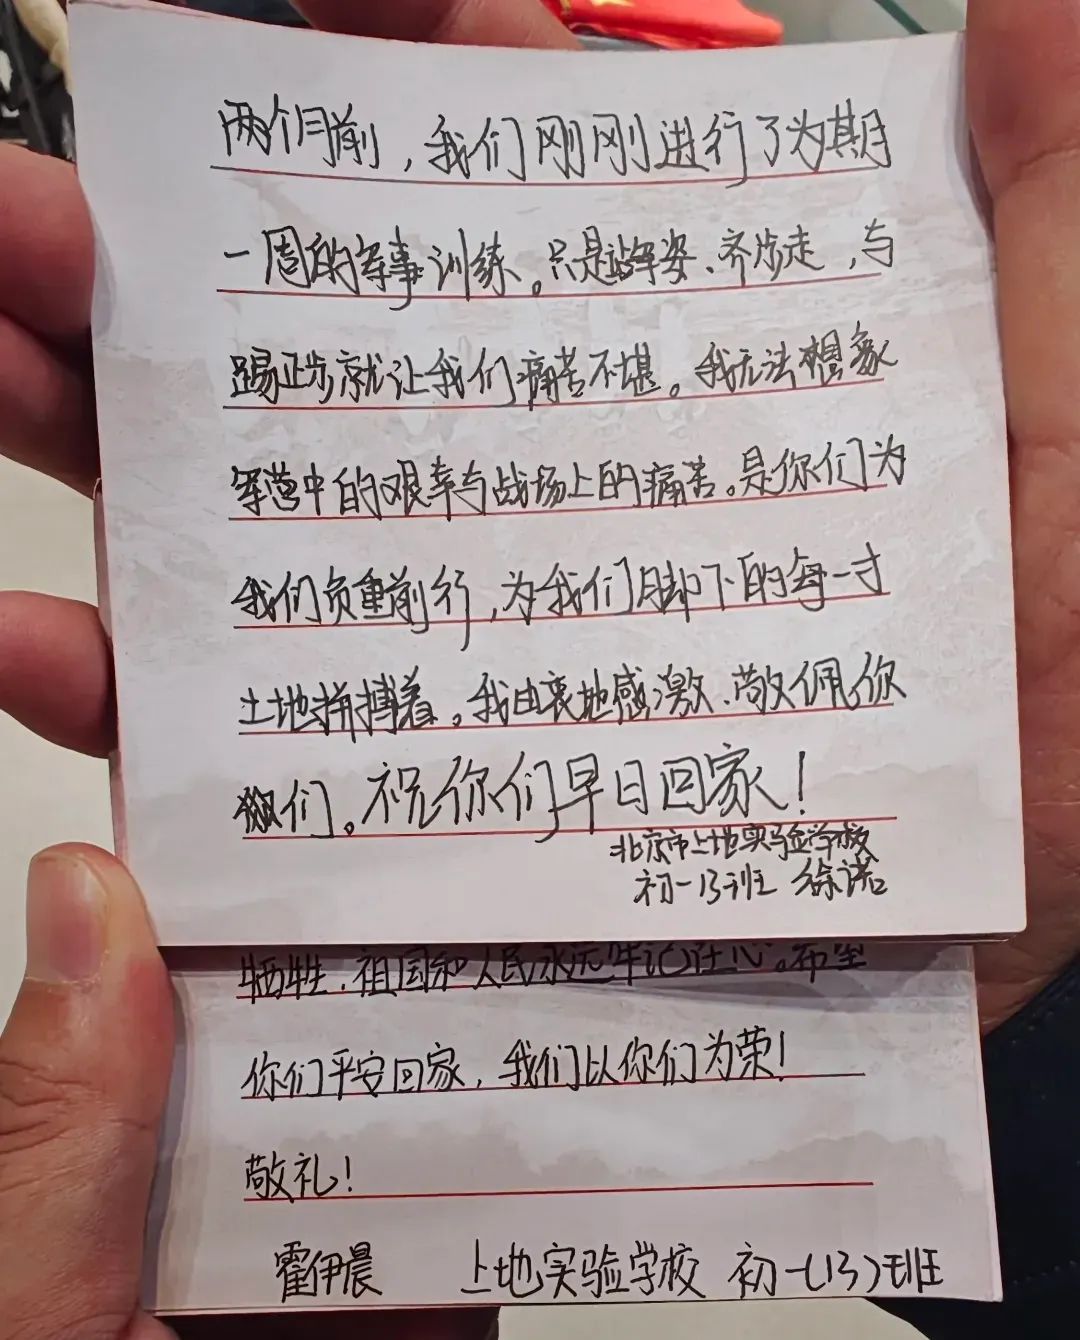 两个月前，我们刚刚进行了为期
一周的军事训练。只是站军姿、齐步走，与
踢正步就让我们痛苦不堪。我无法想象
军营中的艰辛与战场上的痛苦。是你们为
我们负重前行，为我们脚下的每一寸
土地拼搏着。我由衷地感激、敬佩你
们。祝你们早日回家！
北京市上地实验学校
初一13班 徐诺
牺牲，祖国和人民永远牢记在心。希望
你们平安回家，我们以你们为荣！
敬礼！
霍伊晨 上地实验学校 初一（13）班